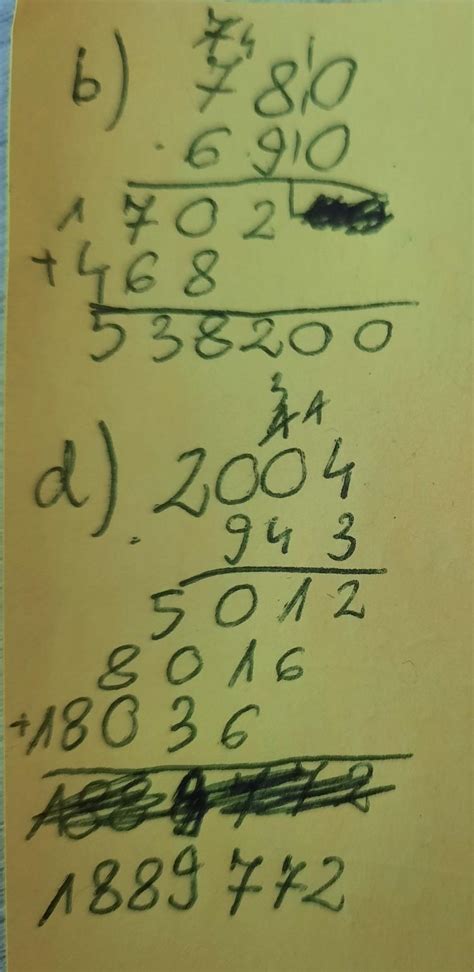 7 4 1
b) 780
· 690
1 702
+468
538200
3
1 1
d) 2004
· 943
5012
8016
+18036
1889772